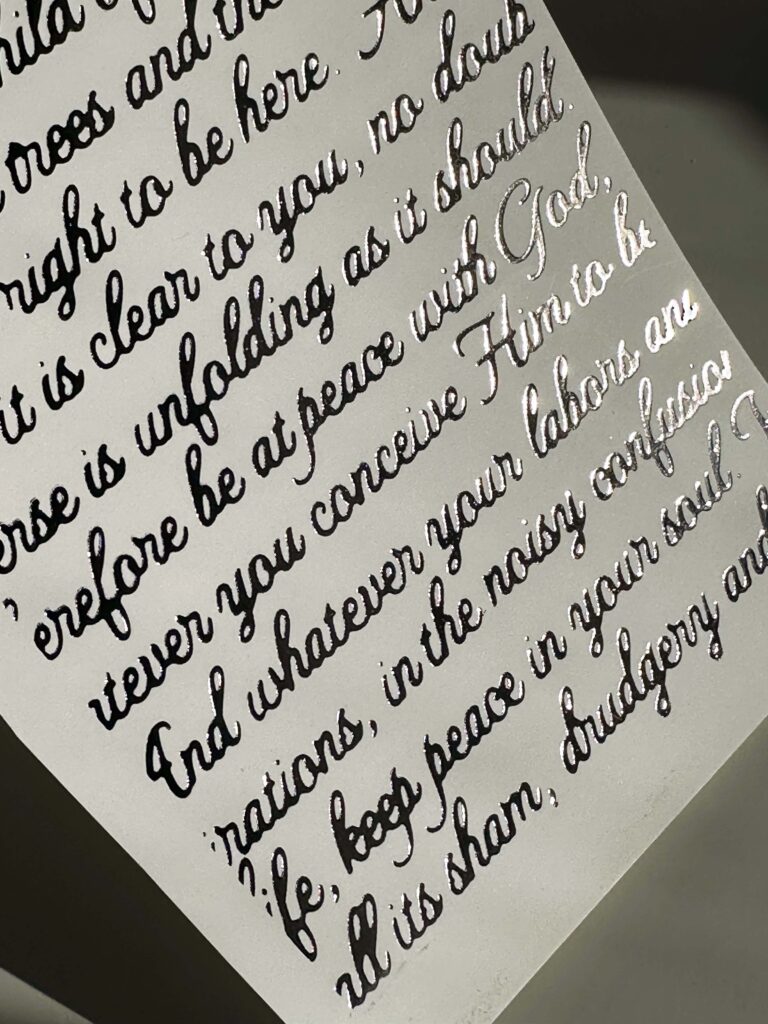 hild of
trees and the
right to be here. An
it is clear to you, no doub
erse is unfolding as it should.
erefore be at peace with God,
tever you conceive Him to be
And whatever your labors and
rations, in the noisy confusion
ife, keep peace in your soul.
all its sham, drudgery and